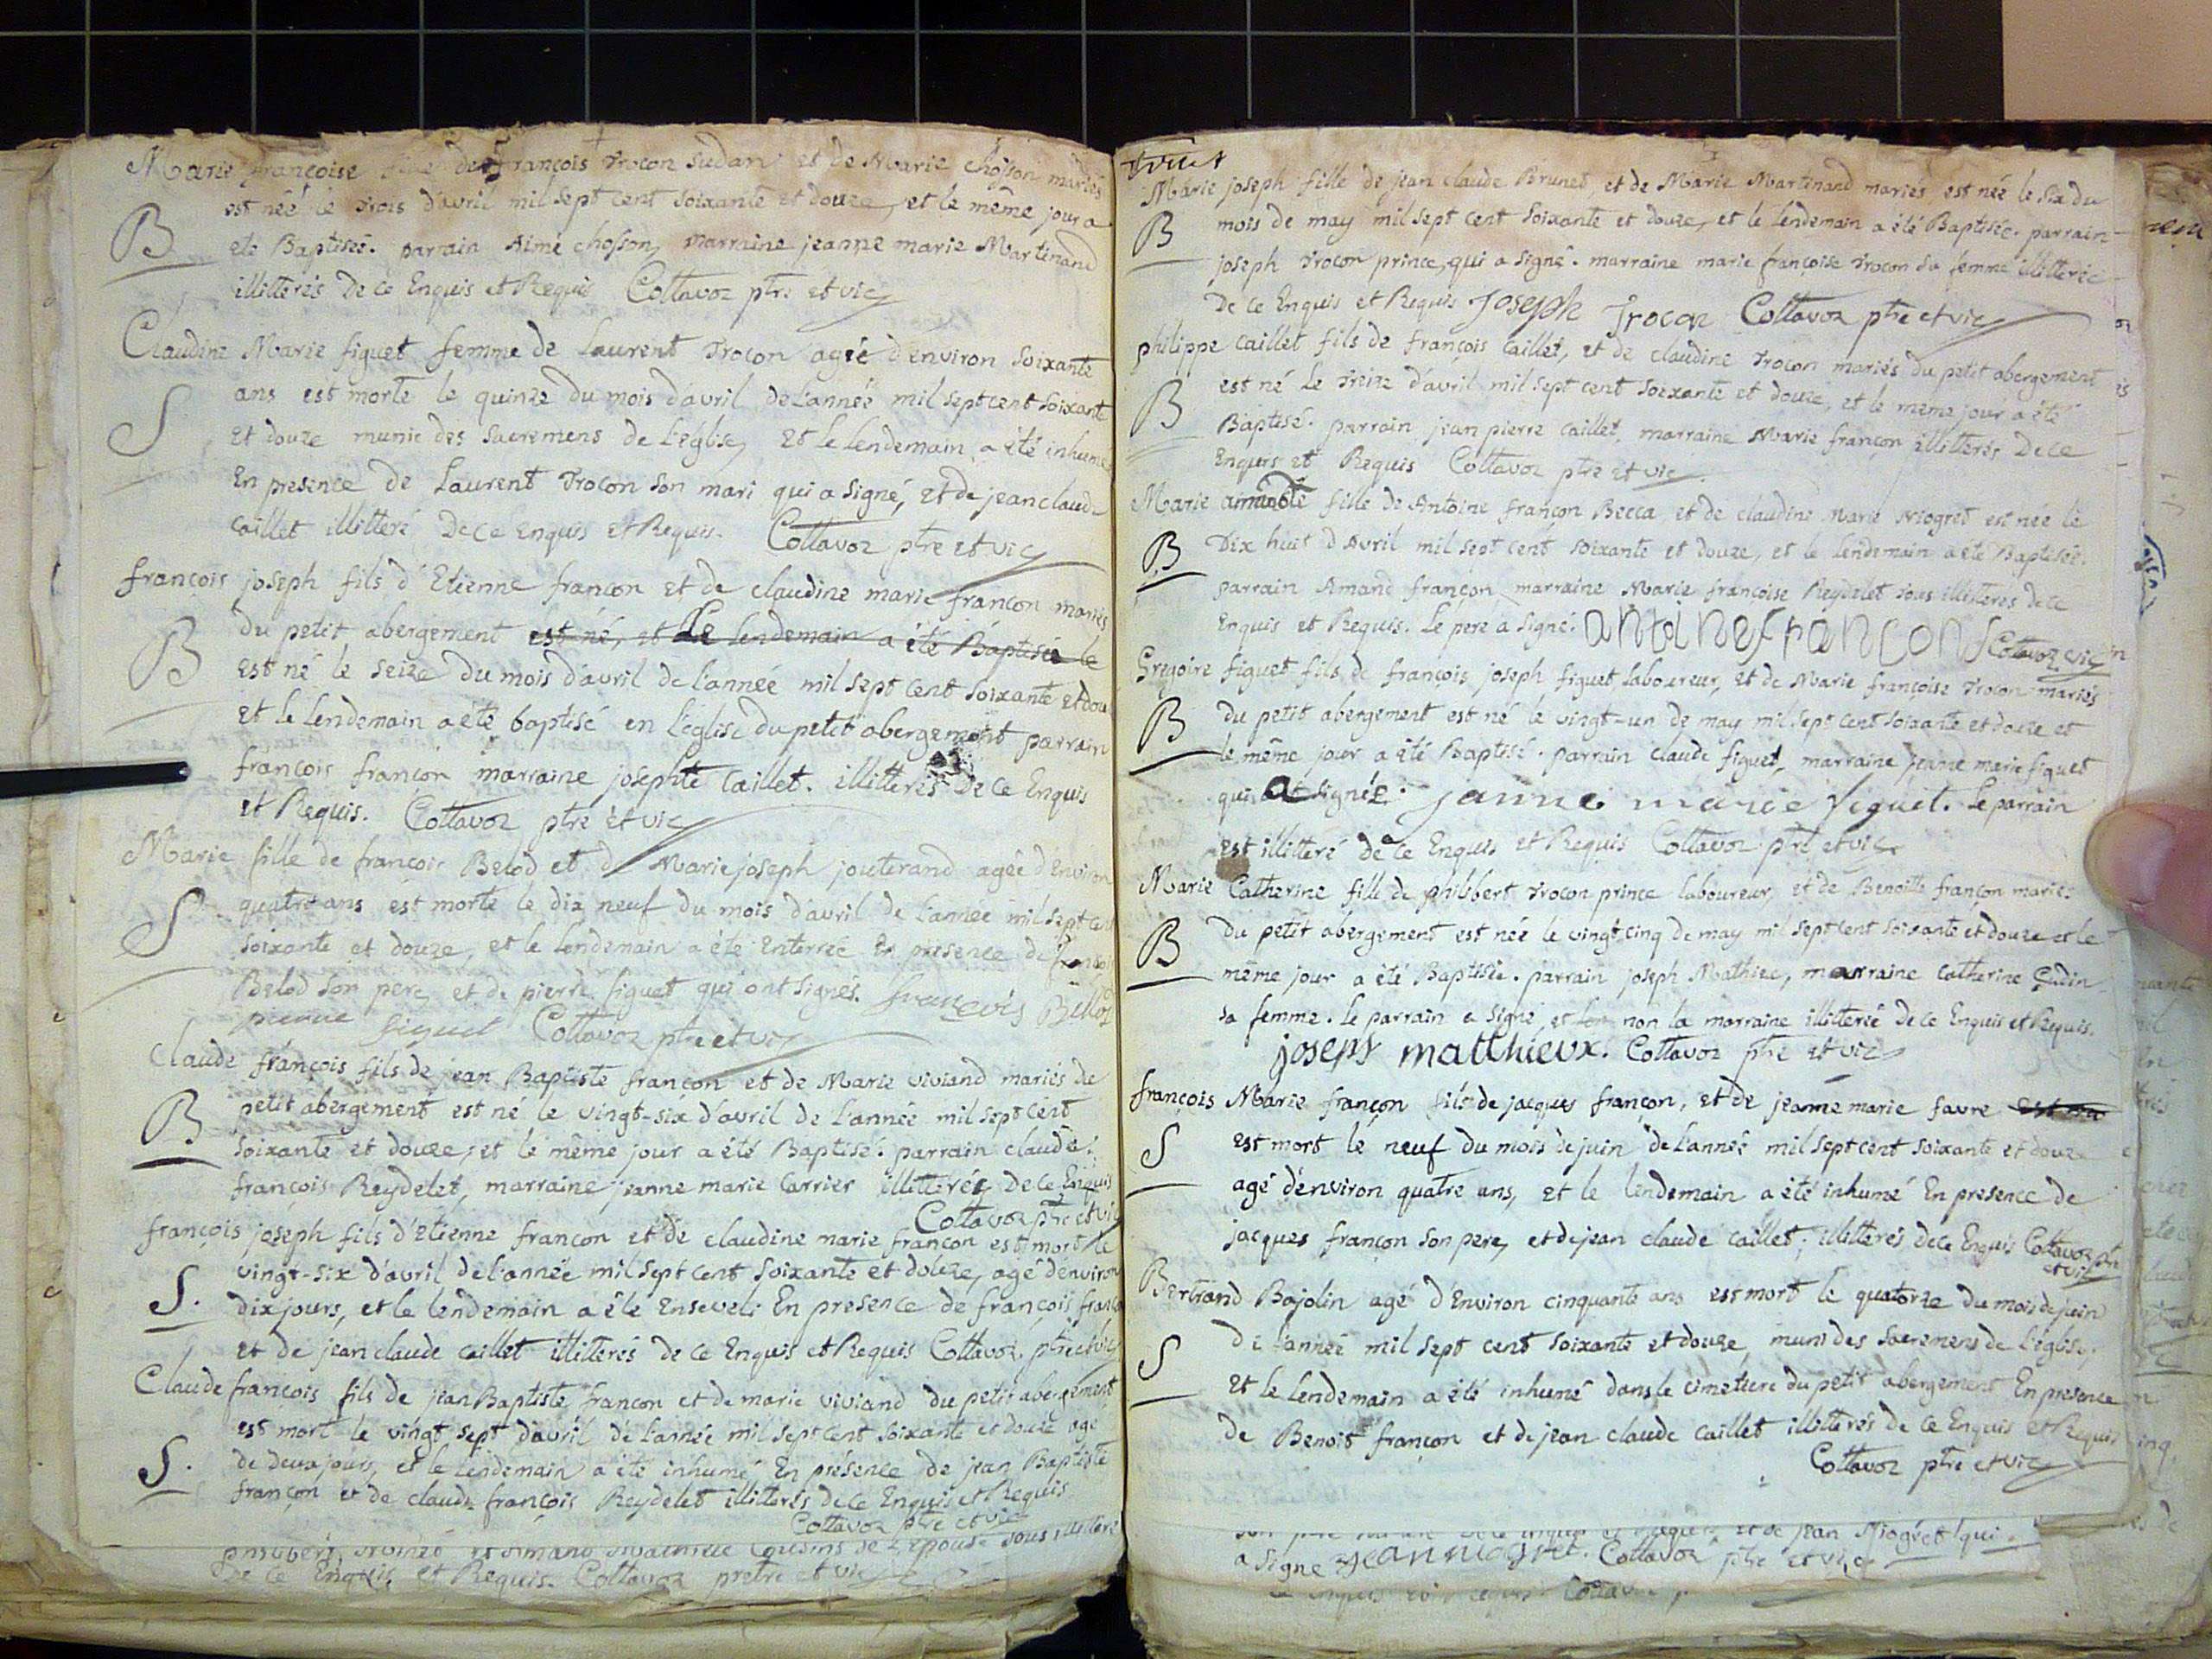 Marie françoise fille de françois Trocon sudan et de Marie chosson mariés
est née le trois d'avril mil sept cent soixante et douze, et le même jour a
B
eté Baptisée. parrain Aimé chosson, marraine jeanne marie Martinand
illitterés De ce Enquis et Requis Cottavoz ptre et vic
Claudine Marie figuet femme de Laurent Trocon agée d'environ soixante
ans est morte le quinze du mois d'avril de l'année mil sept cent soixante
S
et douze munie des sacremens de l'église, Et le lendemain a été inhumée
En presence de Laurent Trocon son mari qui a signé, et de jean claude
caillet illitteré De ce Enquis et Requis. Cottavoz ptre et vic
françois joseph fils d'Etienne françon et de claudine marie françon mariés
du petit abergement est né, et Le lendemain a été Baptisée le
B
est né le seize du mois d'avril de l'année mil sept cent soixante et dou
et le lendemain a été baptisé en l'église du petit abergement parrain
françois françon marraine josephte caillet. illitterés De ce Enquis
et Requis. Cottavoz ptre et vic
Marie fille de françois Belod et d Marie joseph jouterand agée d'environ
quatre ans est morte le dix neuf du mois d'avril de l'année mil sept cent
S
soixante et douze, et le lendemain a été Enterrée En presence de françois
Belod son pere, et de pierre figuet qui ont signés. francois Bellod
pierre figuet Cottavoz ptre et vic
Claude françois fils de jean Baptiste françon et de Marie viviand mariés de
petit abergement est né le vingt-six d'avril de l'année mil sept cent
B
soixante et douze, et le même jour a été Baptisé. parrain claude
françois Reydelet, marraine jeanne marie Carrier illitterés De ce Enquis
Cottavoz ptre et vic
françois joseph fils d'etienne françon et de claudine marie françon est mort le
vingt-six d'avril de l'année mil sept cent soixante et douze, agé d'environ
S.
dix jours, et le lendemain a été Enseveli En presence de françois franço
et de jean claude caillet illitterés de ce Enquis et Requis Cottavoz. ptre et vic
Claude françois fils de jean Baptiste françon et de marie viviand du petit abergement
est mort le vingt sept d'avril de l'année mil sept cent soixante et douze agé
S.
de deux jours, et le lendemain a été inhumé En présence de jean Baptiste
françon et de claude françois Reydelet illitterés de ce Enquis et Requis
Cottavoz ptre et vic
philibert et Armand cousins de L'epouse tous illitteré
De ce Enquis et Requis. Cottavoz pretre et vic
Marie joseph fille de jean claude Brunet et de Marie Martinand mariés est née le six du
mois de may mil sept cent soixante et douze, et le lendemain a été Baptisée. parrain
B
joseph Trocon prince, qui a signé. marraine marie françoise Trocon sa femme illitterée
De ce Enquis et Requis Joseph Trocon Cottavoz ptre et vic
philippe caillet fils de françois Caillet, et de claudine Trocon mariés du petit abergement
est né Le treize d'avril mil sept cent soixante et douze, et le meme jour a été
B
Baptisé. parrain jean pierre caillet, marraine Marie françon illitterés De ce
Enquis et Requis Cottavoz ptre et vic.
Marie fille de Antoine françon Becca et de claudine Marie Niogret est née le
B
Dix huit d'Avril mil sept cent soixante et douze, et le lendemain a été Baptisée.
parrain Amand françon, marraine Marie françoise Reydelet tous illitterés de ce
Enquis et Requis. Le pere a signé. antoinefrancon Cottavoz vic
Gregoire figuet fils de françois joseph figuet laboureur, et de Marie françoise Trocon mariés
B
du petit abergement est né le vingt-un de may mil sept cent soixante et douze et
le même jour a été Baptisé. parrain claude figuet, marraine jeanne marie figuet
qui a signée. janne marie figuet. Le parrain
est illitteré de ce Enquis et Requis Cottavoz ptre et vic
Marie Catherine fille de philibert Trocon prince laboureur, et de Benoitte françon mariés
du petit abergement est née le vingt cinq de may mil sept cent soixante et douze et le
B
même jour a été Baptisée. parrain joseph Mathieu, marraine catherine
sa femme. Le parrain a signé, et non la marraine illitterée De ce Enquis et Requis.
joseph matthieux. Cottavoz ptre et vic
françois Marie françon fils de jacques françon, et de jeanne marie favre
S
est mort le neuf du mois de juin de l'année mil sept cent soixante et douze
agé d'environ quatre ans, et le lendemain a été inhumé En presence de
jacques françon son pere, et de jean claude caillet, illitterés de ce Enquis Cottavoz ptre
et vic
Bertrand Bajolin agé d'Environ cinquante ans est mort le quatorze du mois de juin
S
de l'année mil sept cent soixante et douze, muni des sacremens de l'église,
Et le lendemain a été inhumé dans le cimetiere du petit abergement En presence
de Benoit françon et de jean claude caillet illitterés de ce Enquis et Requis
Cottavoz ptre et vic
son pere de ce enquis et requis et de jean Niogret qui
a signe jean niogret. Cottavoz ptre et vic